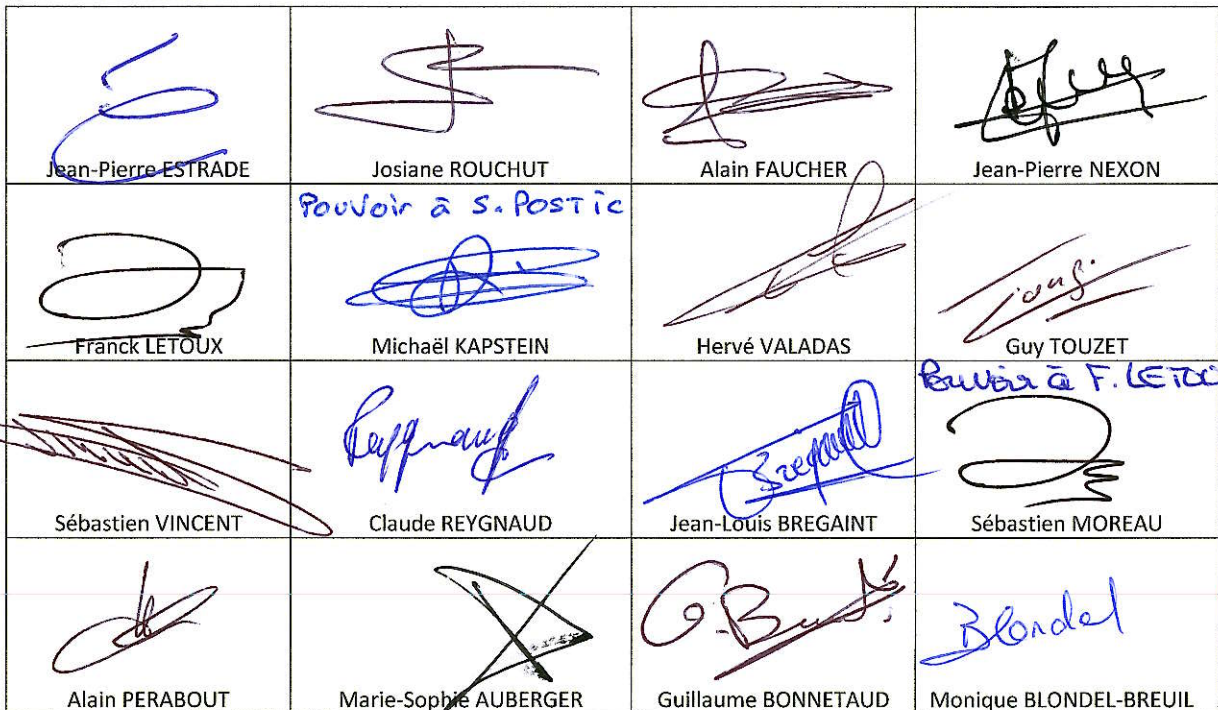 Jean-Pierre ESTRADE
Josiane ROUCHUT
Alain FAUCHER
Jean-Pierre NEXON
Franck LETOUX
Pouvoir à S. POSTIC
Michaël KAPSTEIN
Hervé VALADAS
Guy TOUZET
Sébastien VINCENT
Reygnaud
Claude REYGNAUD
Bregaint
Jean-Louis BREGAINT
Pouvoir à F. LETOU
Sébastien MOREAU
Alain PERABOUT
Marie-Sophie AUBERGER
Guillaume BONNETAUD
Blondel
Monique BLONDEL-BREUIL